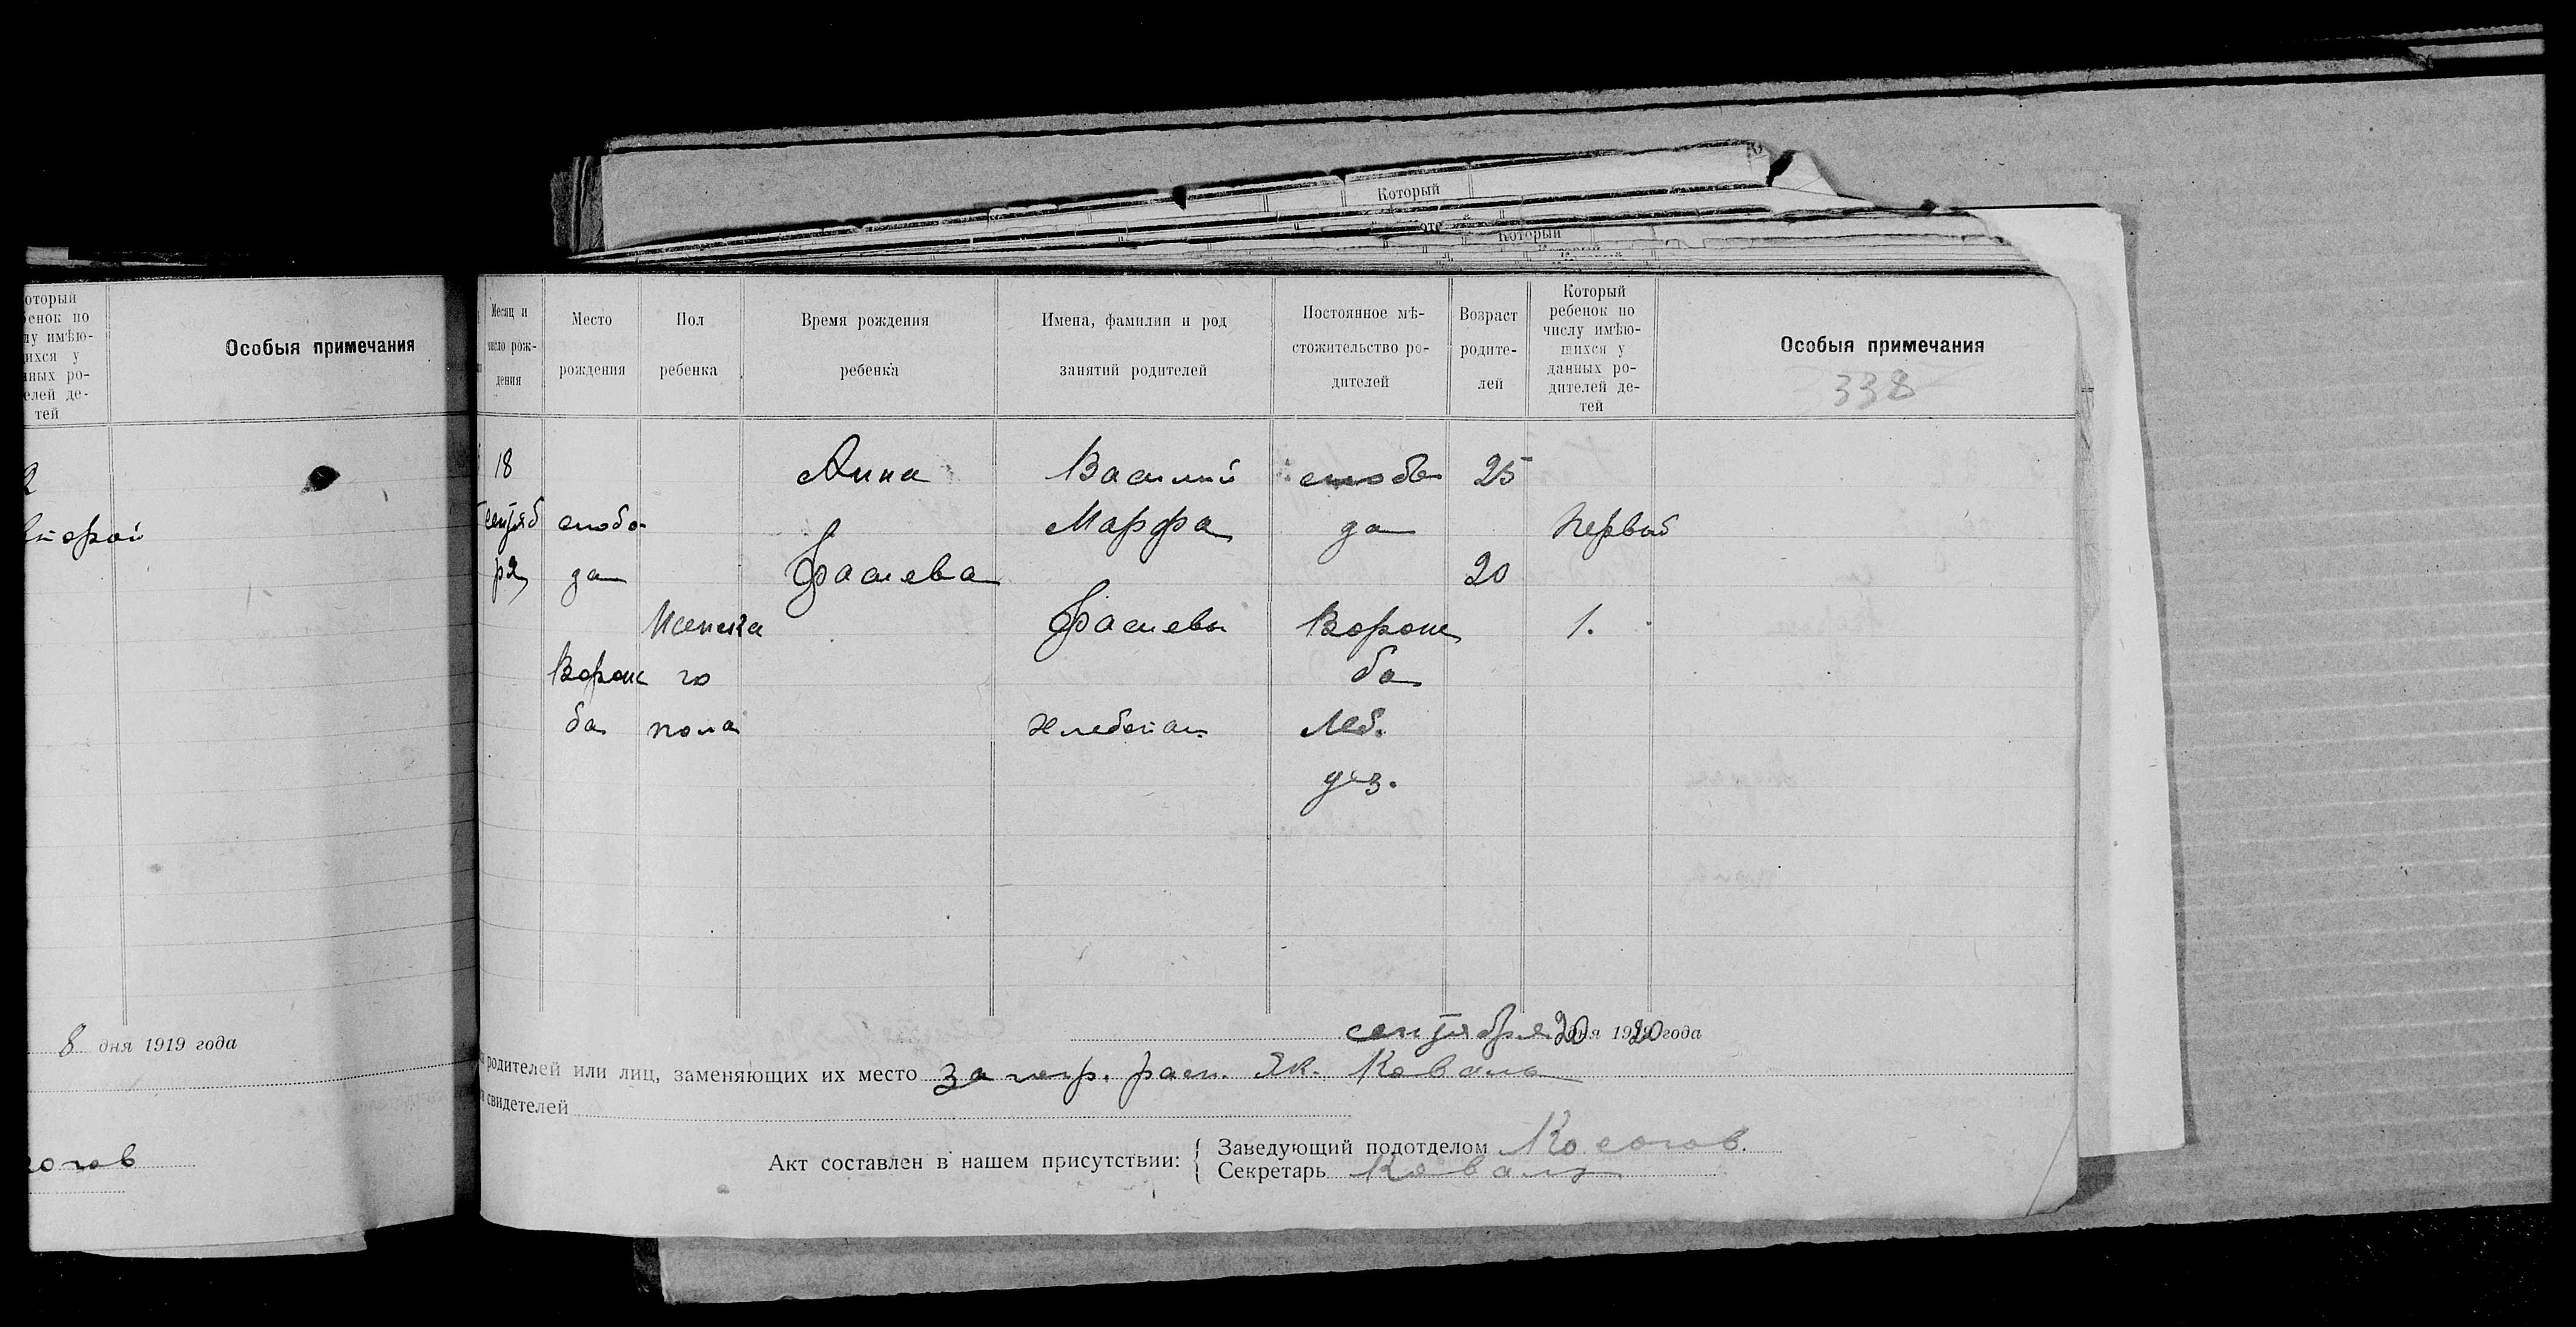 Который
Который
оторый
бенок по
лу имѣю-
ихся у
нных ро-
елей де-
тей
Особыя примечания
второй
8 дня 1919 года
Месяц и число рож- дения
Место рождения
Пол ребенка
Время рождения ребенка
Имена, фамилии и род занятий родителей
Постоянное мѣ- стожительство ро- дителей
Возраст родите- лей
Который ребенок по числу имѣю- щихся у данных ро- дителей де- тей
Особыя примечания
338
18 сентяб ря
слобо- даВорож ба
Женска го пола
Анна
Василий Марфа
слобо да Ворож ба Леб. уез.
25
20
Первый 1.
хлебопаш.
сентября 20 дня 1920 года
родителей или лиц, заменяющих их место за негр. расп. Як. Коваль
свидетелей
Акт составлен в нашем присутствии:
Заведующий подотделом
Секретарь Коваль